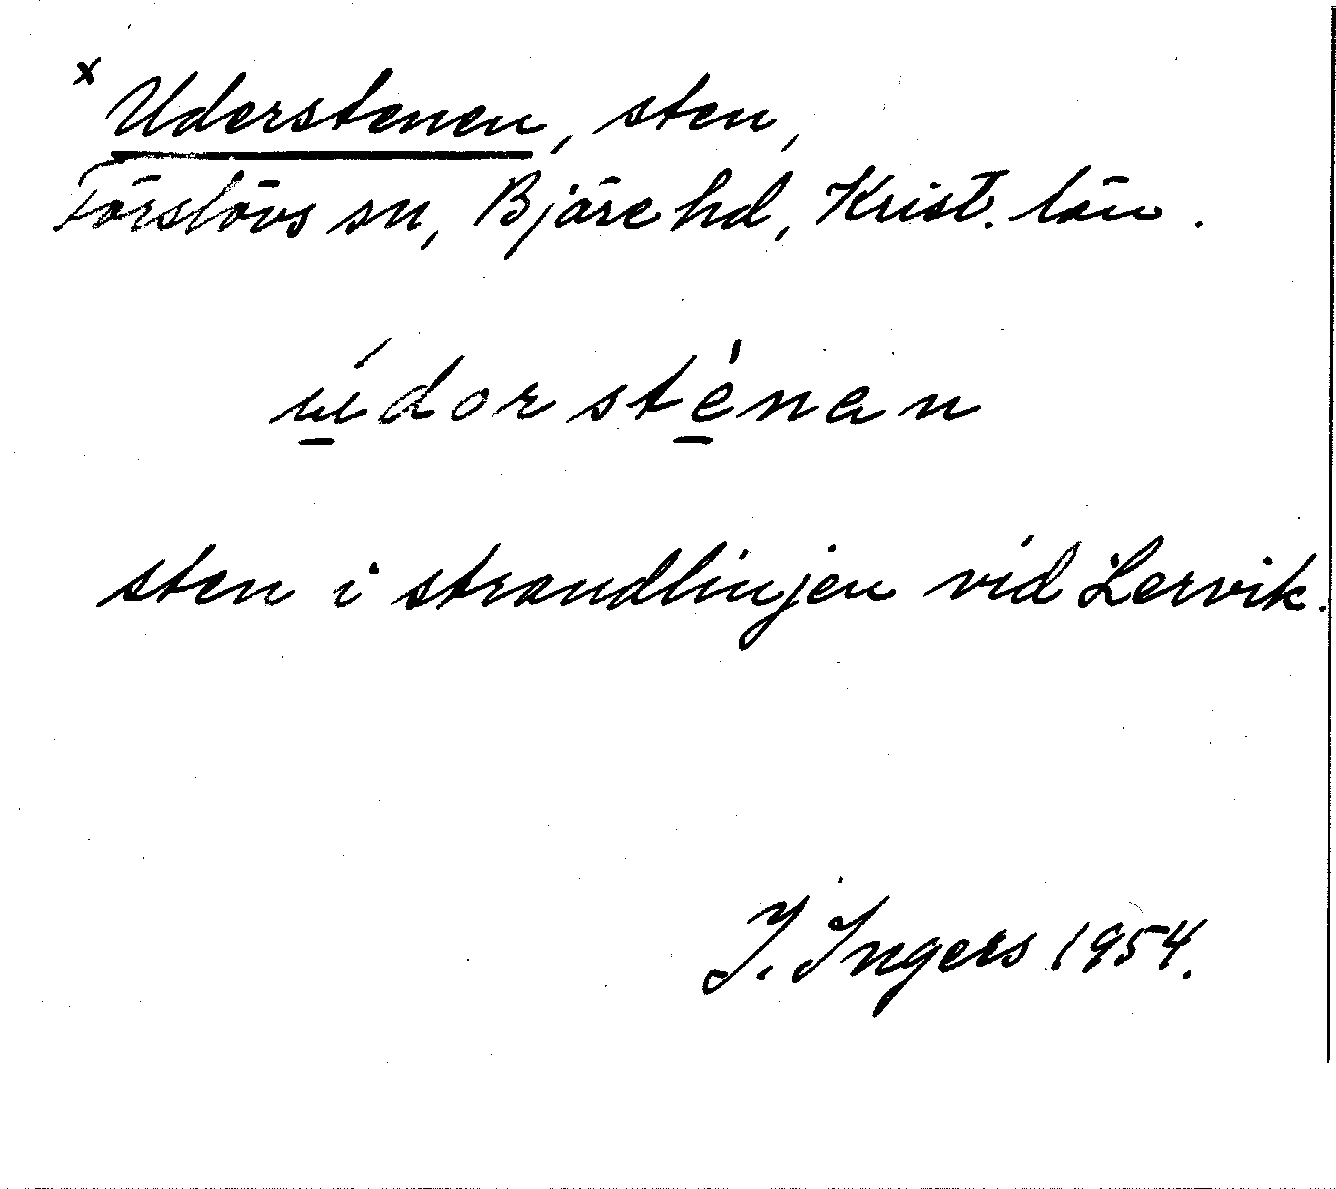 x Uderstenen, sten,
Förslövs sn, Bjäre hd, Krist. län.
údorstènan
sten i strandlinjen vid Lervik.
I. Ingers 1954.